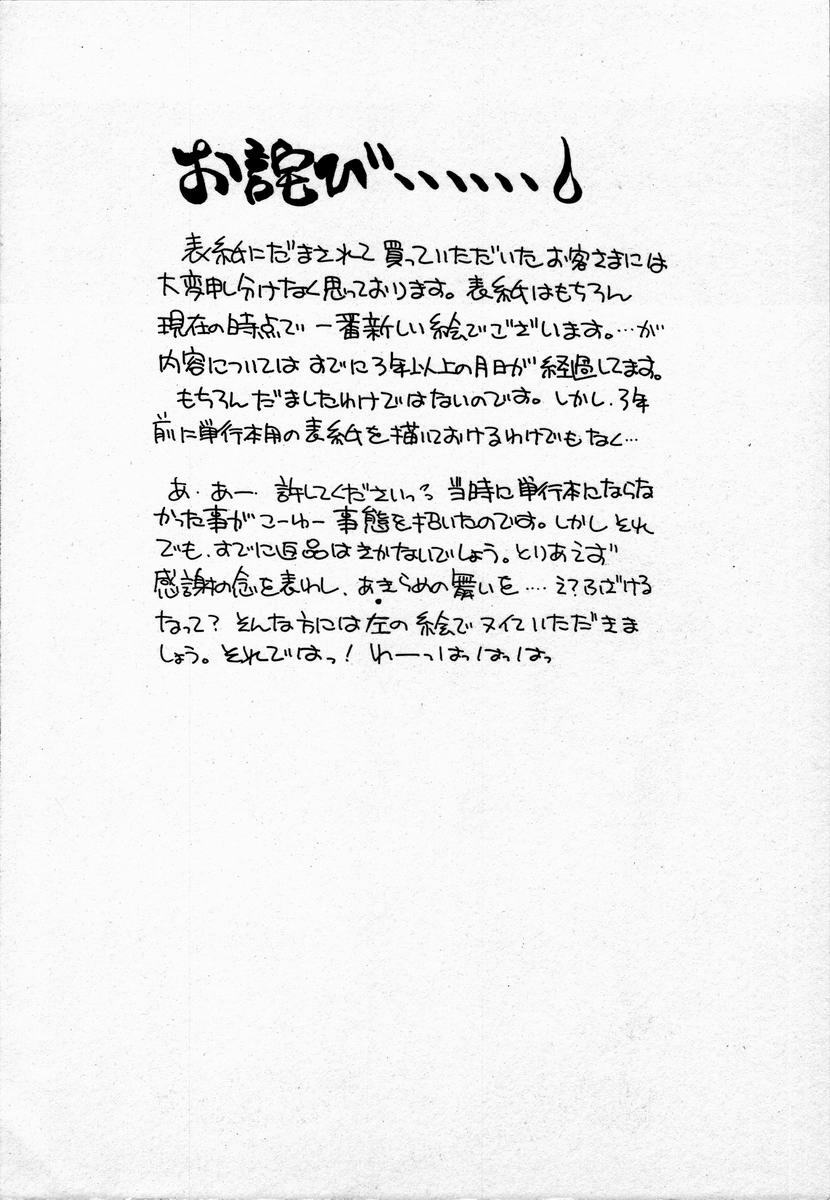 お詫び、、、、、、
表紙にだまされて買っていただいたお客さまには
大変申し分けなく思っております。表紙はもちろん
現在の時点で一番新しい絵でございます。…が
内容についてはすでに3年以上の月日が経過してます。
もちろんだましたわけではないのです。しかし、3年
前に単行本用の表紙を描いておけるわけでもなく…
あ・あー・許してくださいっ?当時に単行本にならな
かった事がこーゆー事態を招いたのです。しかしそれ
でも、すでに返品はきかないでしょう。とりあえず
感謝の念を表わし、あきらめの舞いを…え?ふざける
なって?そんな方には左の絵でヌイていただきま
しょう。それではっ!わーっはっはっはっ